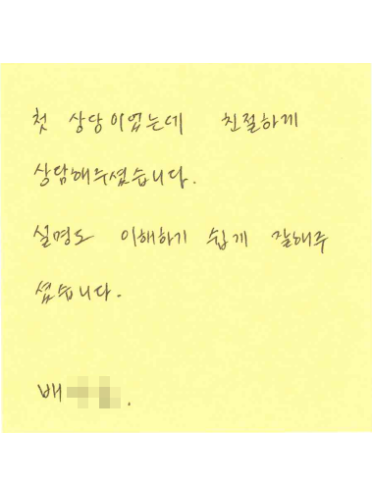 첫 상담이었는데 친절하게
상담해주셨습니다.
설명도 이해하기 쉽게 잘해주
셨습니다.
배